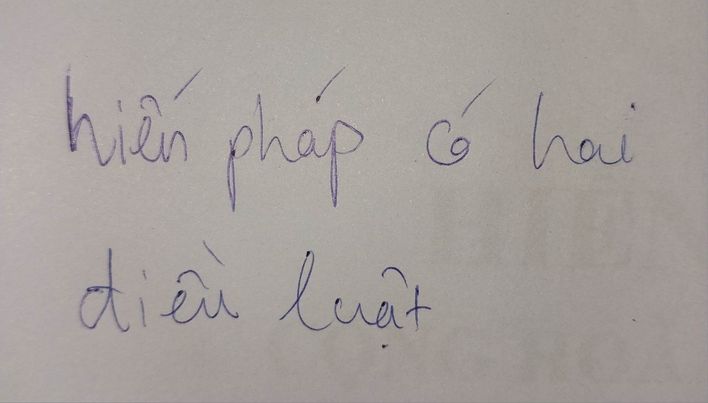 hiến pháp có hai
điều luật